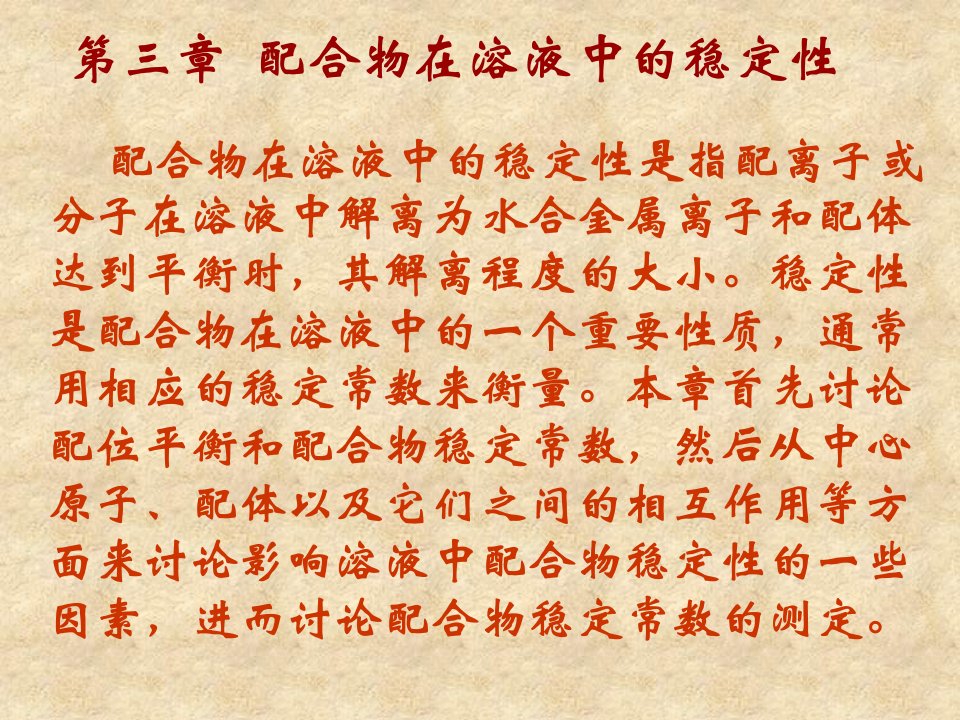 第三章 配合物在溶液中的稳定性
配合物在溶液中的稳定性是指配离子或
分子在溶液中解离为水合金属离子和配体
达到平衡时，其解离程度的大小。稳定性
是配合物在溶液中的一个重要性质，通常
用相应的稳定常数来衡量。本章首先讨论
配位平衡和配合物稳定常数，然后从中心
原子、配体以及它们之间的相互作用等方
面来讨论影响溶液中配合物稳定性的一些
因素，进而讨论配合物稳定常数的测定。